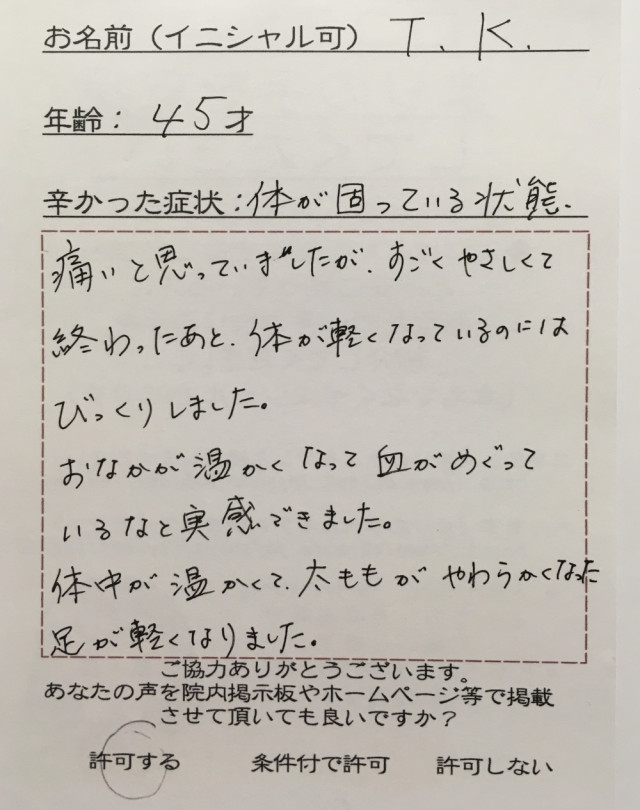 お名前（イニシャル可） T. K.
年齢： 45才
辛かった症状：体が固っている状態.
痛いと思っていましたが、すごくやさしくて
終わったあと、体が軽くなっているのには
びっくりしました。
おなかが温かくなって血がめぐって
いるなと実感できました。
体中が温かくて、太ももがやわらかくなった
足が軽くなりました。
ご協力ありがとうございます。
あなたの声を院内掲示板やホームページ等で掲載
させて頂いても良いですか？
許可する 条件付で許可 許可しない